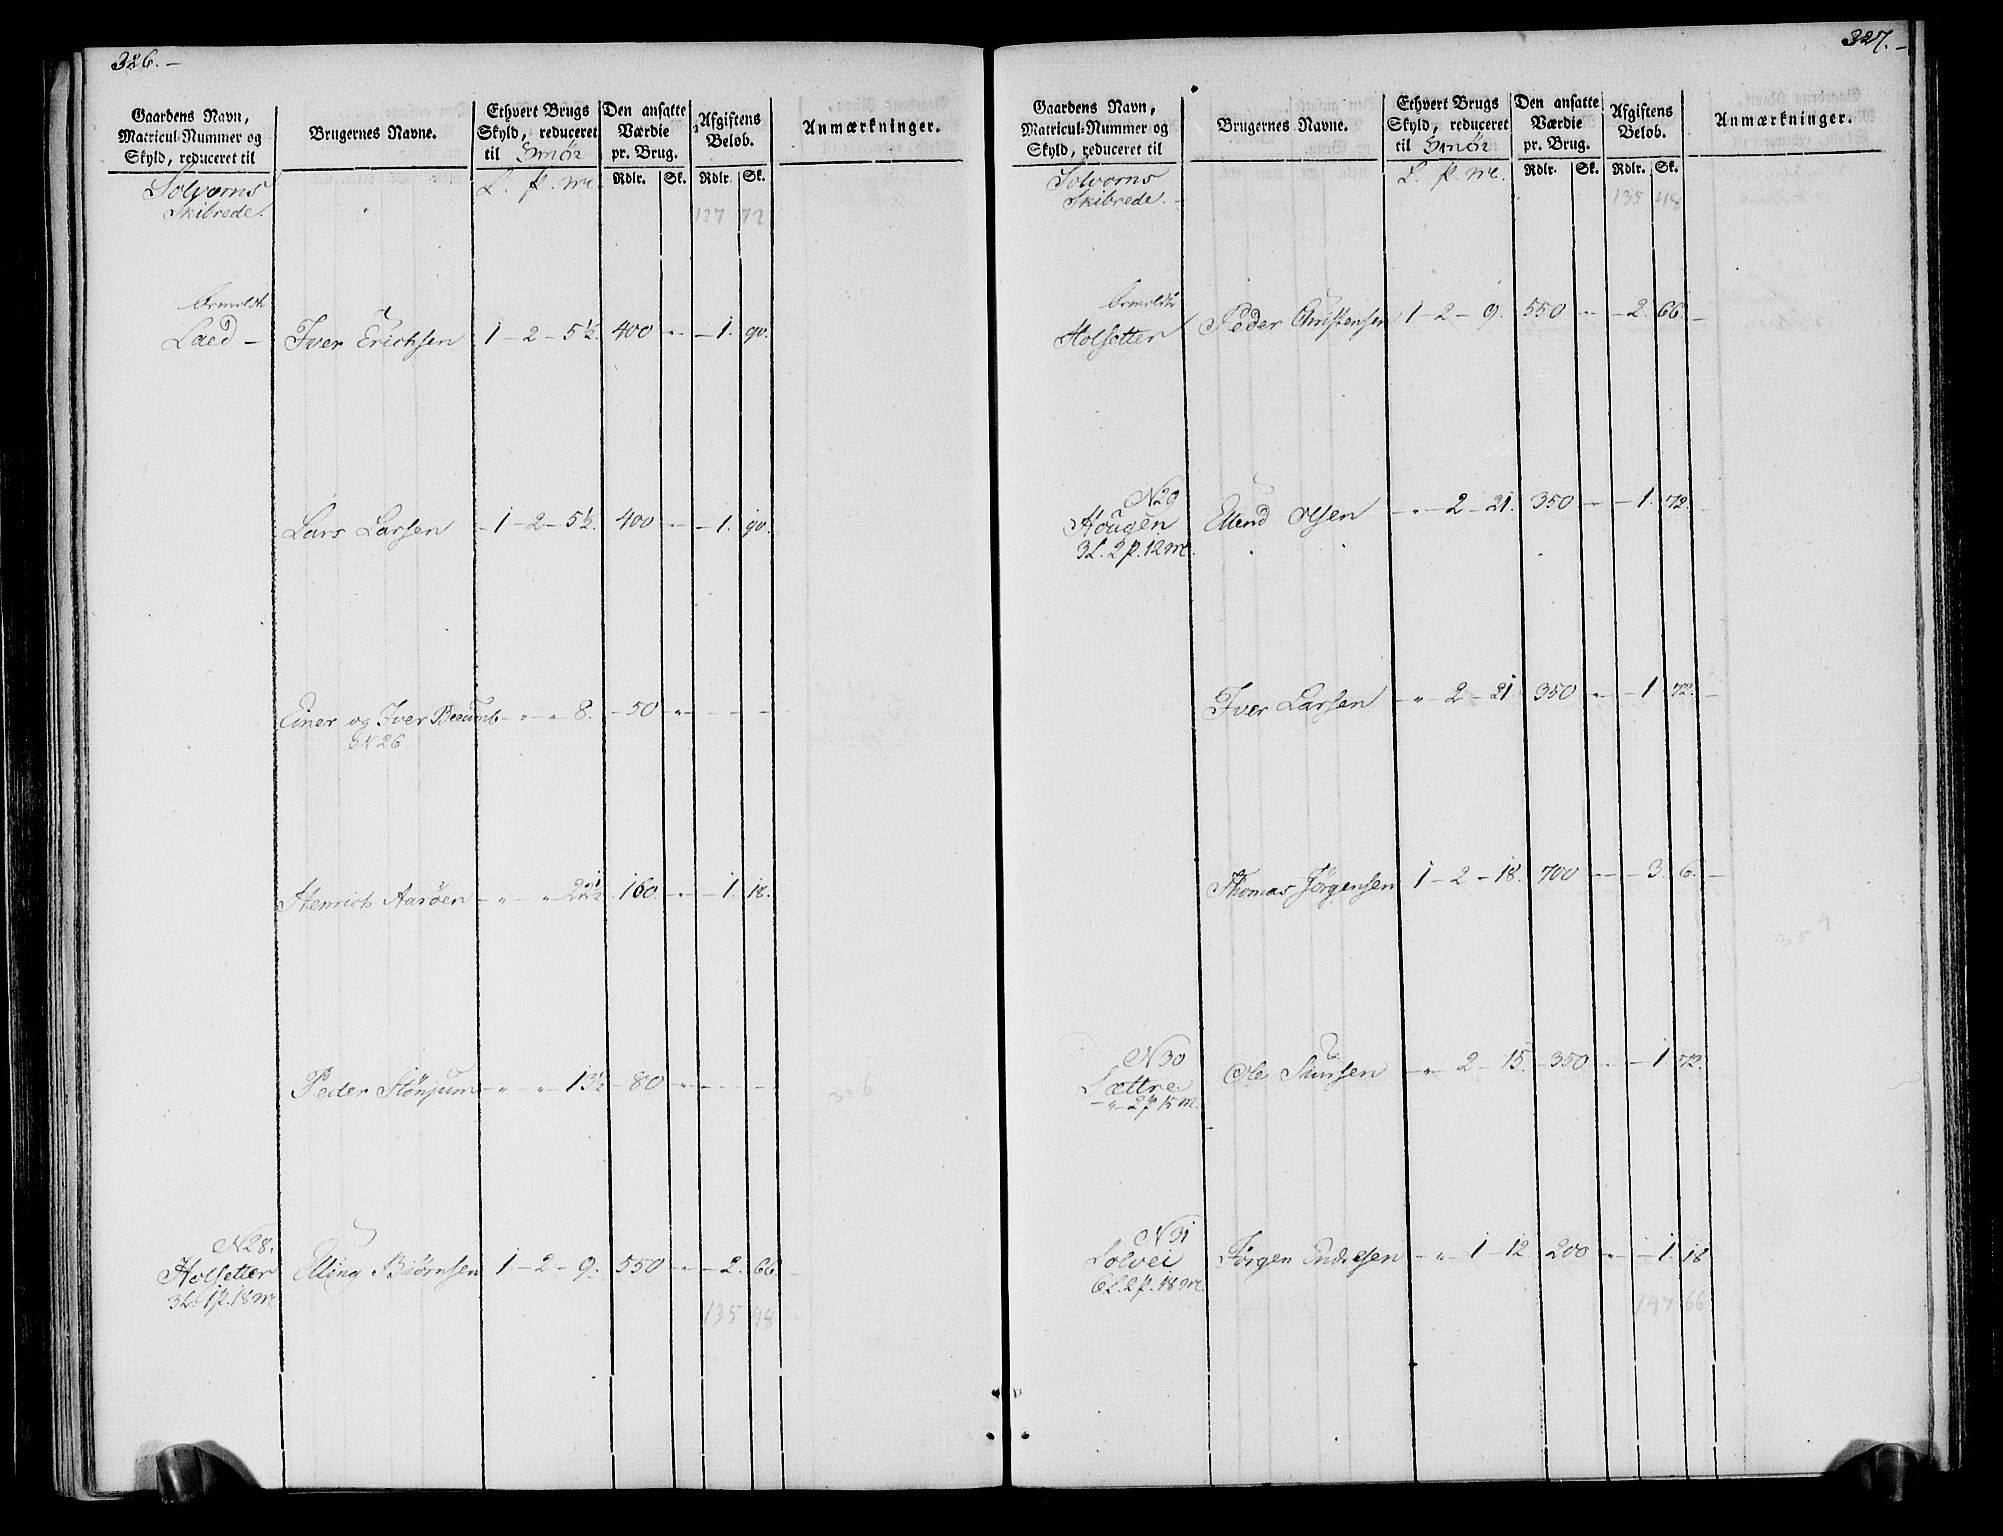 326.
Gaardens Navn,
Matricul-Nummer og
Skyld, reduceret til
Brugernes Navne.
Ethvert Brugs
Skyld, reduceret
til Smör
Den ansatte
Værdie
pr. Brug.
Afgiftens
Beløb.
Anmærkninger.
Solvorns
Skibrede.
L. p. mk.
Rdlr. Sk. Rdlr. Sk.
127 72
Laed – Iver Erichsen 1 – 2 – 5½. 400 " – 1. 90.
Lars Larsen – 1 – 2 – 5½. 400 " – 1. 90.
Einer og Iver – " – " 8. – 50 – " – – –
Henrich Aaröen – " – " 22½ – 160. – " – 1. 18.
Peder Stönjum – " – " 13½ – 80 – " – – –
N 28.
Holsetter Elling Biörnsen 1 – 2 – 9. 550 – " – 2. 66.
3L. 1p. 18mk
135 48
327.
Gaardens Navn,
Matricul-Nummer og
Skyld, reduceret til
Brugernes Navne.
Ethvert Brugs
Skyld, reduceret
til Smör
Den ansatte
Værdie
pr. Brug.
Afgiftens
Beløb.
Anmærkninger.
Solvorns
Skibrede.
L. p. mk.
Rdlr. Sk. Rdlr. Sk.
135 48
Holsetter Peder Christensen 1 – 2 – 9. 550 " – 2. 66.
N 29
Hougen Ellend Olsen – " – 2 – 21. 350 – " – 1. 72.
3L. 2p. 12mk.
Iver Larsen – " – 2 – 21. 350 – " – 1. 72.
Thomas Jörgensen 1 – 2 – 18. 700 – 3. 6.
N 30
Sættre Ole – " – 2 – 15. 350 – 1. 72.
– " – 2p 15m.
N 31
Solvei Jörgen Endresen – " – 1 – 12 – 200 " – 1. 18
6L. 2p. 18mk.
147 66